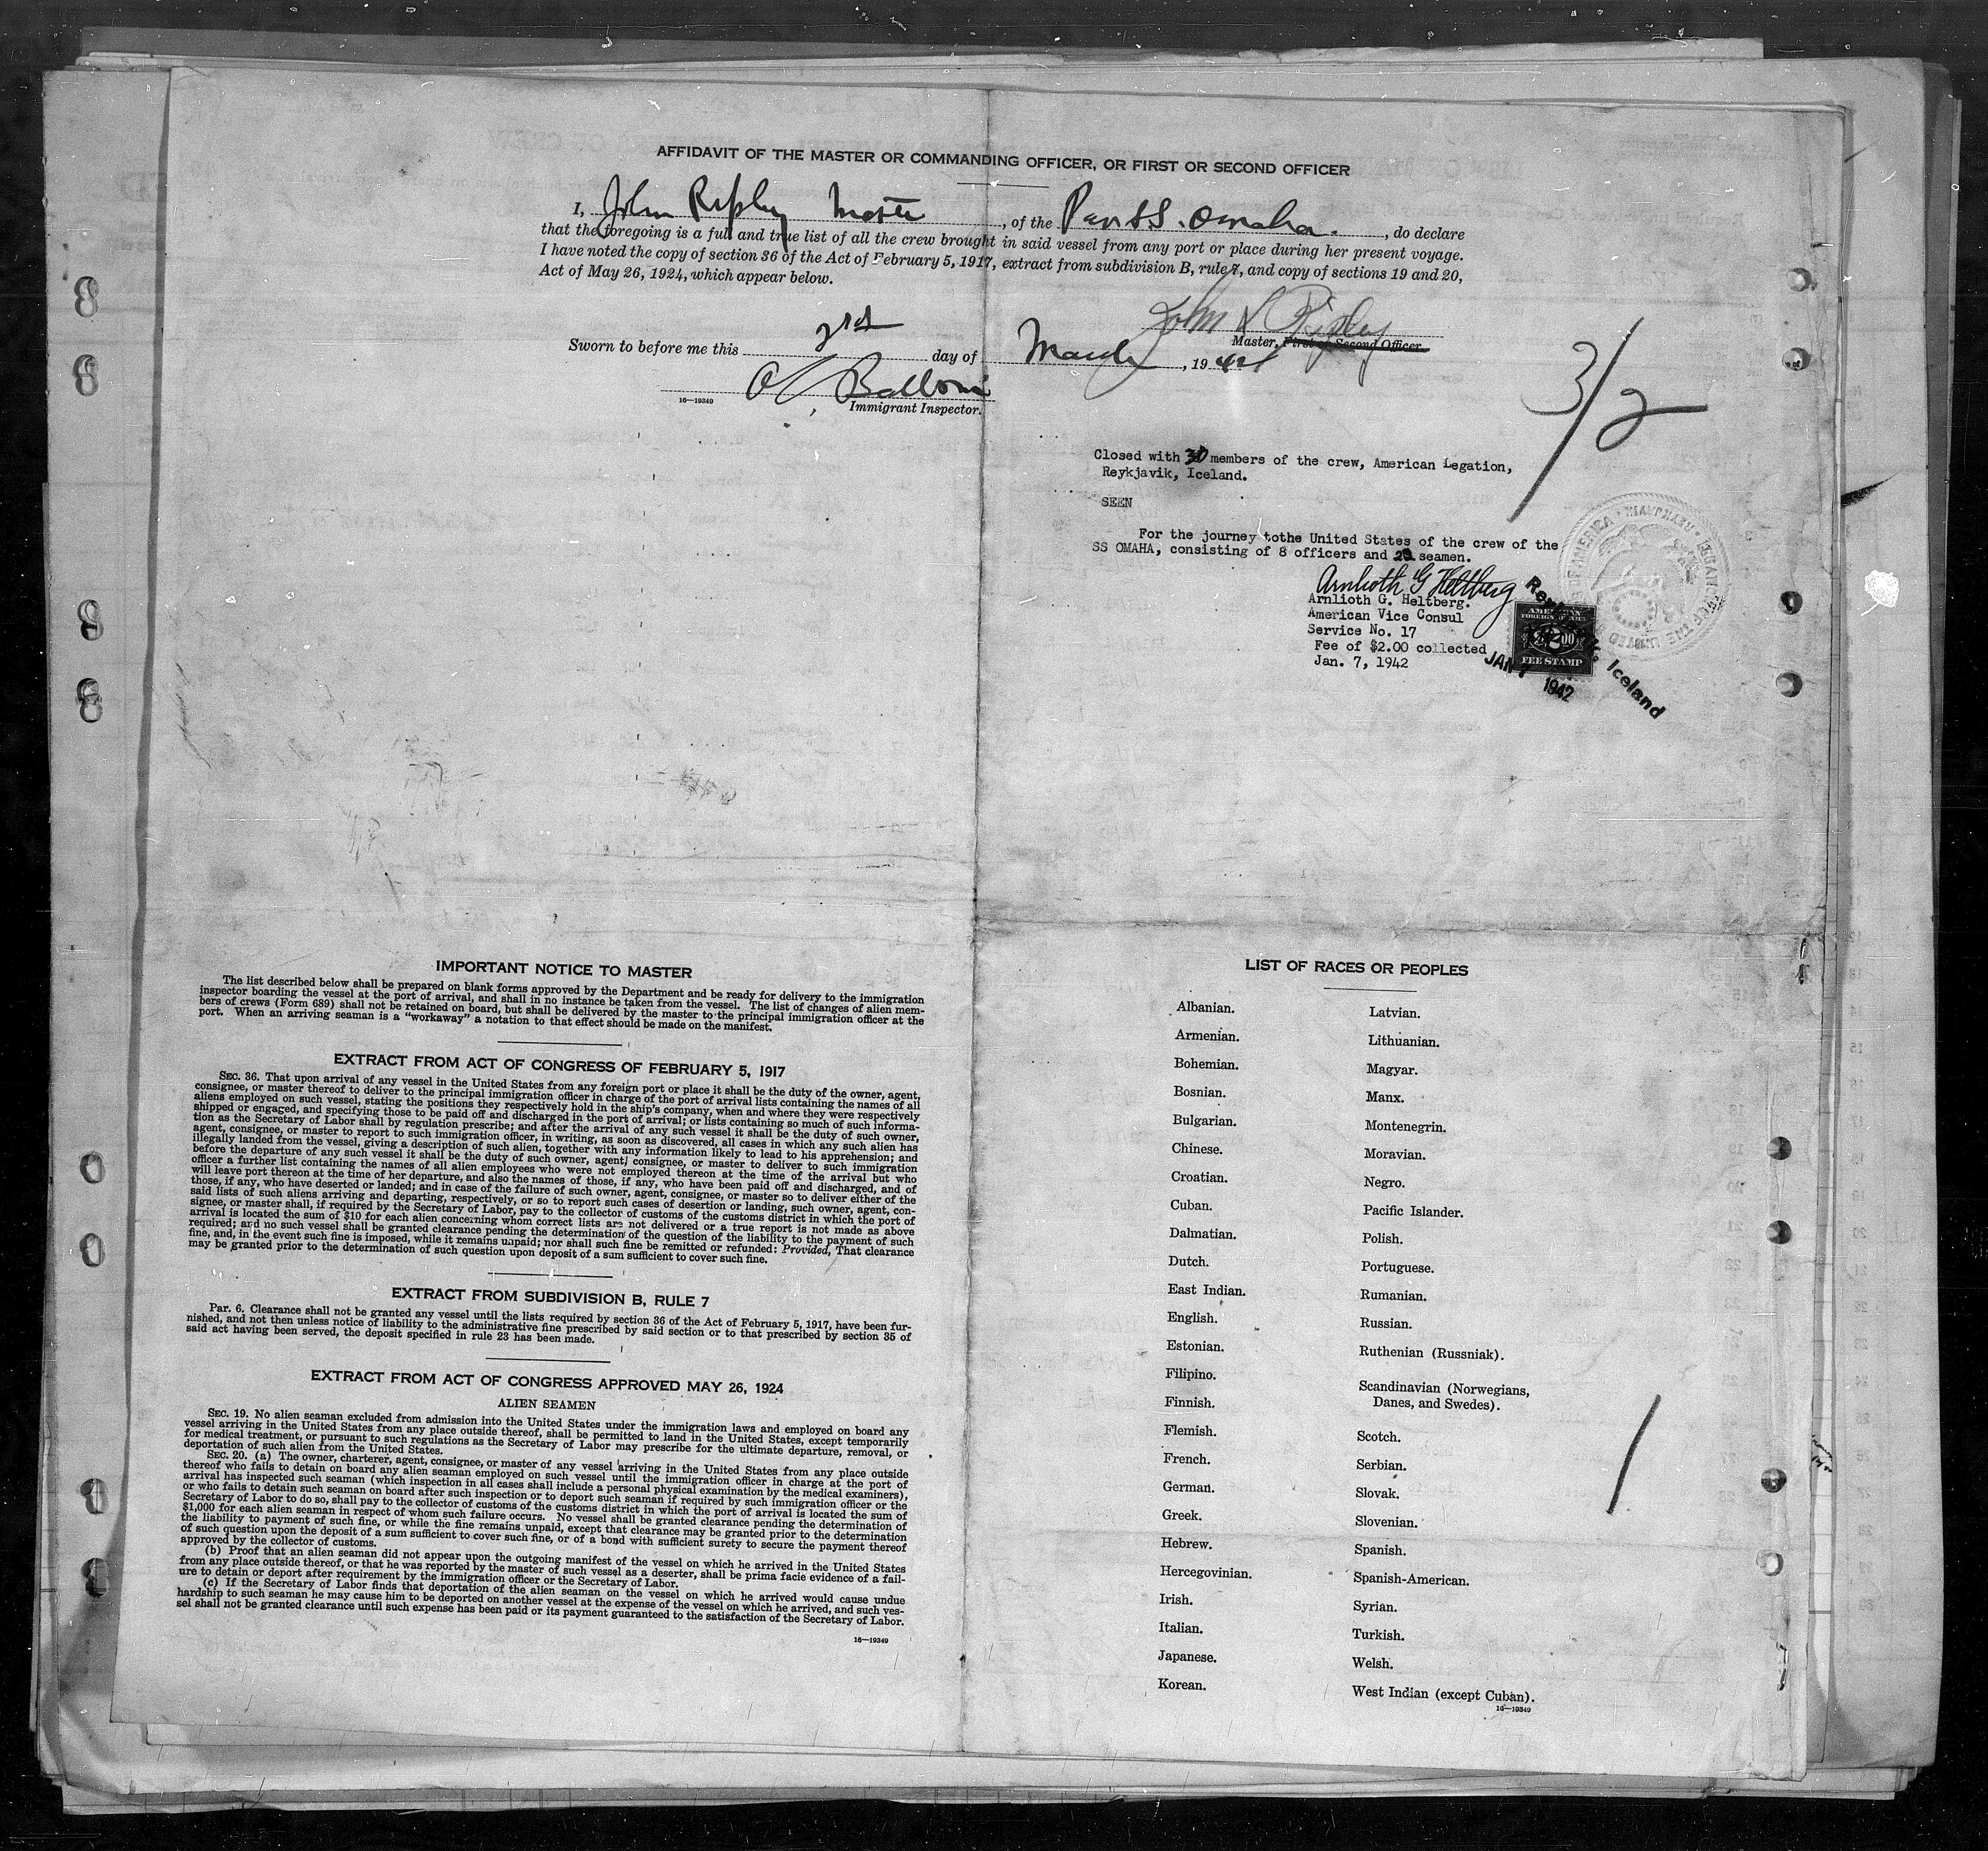 AFFIDAVIT OF THE MASTER OR COMMANDING OFFICER, OR FIRST OR SECOND OFFICER
I, John Ripley Master, of the Pan SS. Omaha., do declare
that the foregoing is a full and true list of all the crew brought in said vessel from any port or place during her present voyage.
I have noted the copy of section 36 of the Act of February 5, 1917, extract from subdivision B, rule 7, and copy of sections 19 and 20,
Act of May 26, 1924, which appear below.
John L Ripley
Master, First or Second Officer.
Sworn to before me this day of March, 1942
Immigrant Inspector.
16—19349
3/2
Closed with 30 members of the crew, American Legation,
Reykjavik, Iceland.
SEEN
For the journey tothe United States of the crew of the
SS OMAHA, consisting of 8 officers and seamen.
Arnlioth G Heltberg
Arnlioth G. Heltberg.
American Vice Consul
Service No. 17
Fee of $2.00 collected
Jan. 7, 1942
AMERICAN
FOREIGN SERVICE
$2.00
FEE STAMP
Iceland
JAN 7 1942
IMPORTANT NOTICE TO MASTER
The list described below shall be prepared on blank forms approved by the Department and be ready for delivery to the immigration
inspector boarding the vessel at the port of arrival, and shall in no instance be taken from the vessel. The list of changes of alien mem-
bers of crews (Form 689) shall not be retained on board, but shall be delivered by the master to the principal immigration officer at the
port. When an arriving seaman is a "workaway" a notation to that effect should be made on the manifest.
EXTRACT FROM ACT OF CONGRESS OF FEBRUARY 5, 1917
SEC. 36. That upon arrival of any vessel in the United States from any foreign port or place it shall be the duty of the owner, agent,
consignee, or master thereof to deliver to the principal immigration officer in charge of the port of arrival lists containing the names of all
aliens employed on such vessel, stating the positions they respectively hold in the ship's company, when and where they were respectively
shipped or engaged, and specifying those to be paid off and discharged in the port of arrival; or lists containing so much of such informa-
tion as the Secretary of Labor shall by regulation prescribe; and after the arrival of any such vessel it shall be the duty of such owner,
agent, consignee, or master to report to such immigration officer, in writing, as soon as discovered, all cases in which any such alien has
illegally landed from the vessel, giving a description of such alien, together with any information likely to lead to his apprehension; and
before the departure of any such vessel it shall be the duty of such owner, agent, consignee, or master to deliver to such immigration
officer a further list containing the names of all alien employees who were not employed thereon at the time of the arrival but who
will leave port thereon at the time of her departure, and also the names of those, if any, who have been paid off and discharged, and of
those, if any, who have deserted or landed; and in case of the failure of such owner, agent, consignee, or master so to deliver either of the
said lists of such aliens arriving and departing, respectively, or so to report such cases of desertion or landing, such owner, agent, con-
signee, or master shall, if required by the Secretary of Labor, pay to the collector of customs of the customs district in which the port of
arrival is located the sum of $10 for each alien concerning whom correct lists are not delivered or a true report is not made as above
required; and no such vessel shall be granted clearance pending the determination of the question of the liability to the payment of such
fine, and, in the event such fine is imposed, while it remains unpaid; nor shall such fine be remitted or refunded: Provided, That clearance
may be granted prior to the determination of such question upon deposit of a sum sufficient to cover such fine.
EXTRACT FROM SUBDIVISION B, RULE 7
Par. 6. Clearance shall not be granted any vessel until the lists required by section 36 of the Act of February 5, 1917, have been fur-
nished, and not then unless notice of liability to the administrative fine prescribed by said section or to that prescribed by section 35 of
said act having been served, the deposit specified in rule 23 has been made.
EXTRACT FROM ACT OF CONGRESS APPROVED MAY 26, 1924
ALIEN SEAMEN
SEC. 19. No alien seaman excluded from admission into the United States under the immigration laws and employed on board any
vessel arriving in the United States from any place outside thereof, shall be permitted to land in the United States, except temporarily
for medical treatment, or pursuant to such regulations as the Secretary of Labor may prescribe for the ultimate departure, removal, or
deportation of such alien from the United States.
SEC. 20. (a) The owner, charterer, agent, consignee, or master of any vessel arriving in the United States from any place outside
thereof who fails to detain on board any alien seaman employed on such vessel until the immigration officer in charge at the port of
arrival has inspected such seaman (which inspection in all cases shall include a personal physical examination by the medical examiners),
or who fails to detain such seaman on board after such inspection or to deport such seaman if required by such immigration officer or the
Secretary of Labor to do so, shall pay to the collector of customs of the customs district in which the port of arrival is located the sum of
$1,000 for each alien seaman in respect of whom such failure occurs. No vessel shall be granted clearance pending the determination of
the liability to payment of such fine, or while the fine remains unpaid, except that clearance may be granted prior to the determination
of such question upon the deposit of a sum sufficient to cover such fine, or of a bond with sufficient surety to secure the payment thereof
approved by the collector of customs.
(b) Proof that an alien seaman did not appear upon the outgoing manifest of the vessel on which he arrived in the United States
from any place outside thereof, or that he was reported by the master of such vessel as a deserter, shall be prima facie evidence of a fail-
ure to detain or deport after requirement by the immigration officer or the Secretary of Labor.
(c) If the Secretary of Labor finds that deportation of the alien seaman on the vessel on which he arrived would cause undue
hardship to such seaman he may cause him to be deported on another vessel at the expense of the vessel on which he arrived, and such ves-
sel shall not be granted clearance until such expense has been paid or its payment guaranteed to the satisfaction of the Secretary of Labor.
16—19349
LIST OF RACES OR PEOPLES
Albanian.
Armenian.
Bohemian.
Bosnian.
Bulgarian.
Chinese.
Croatian.
Cuban.
Dalmatian.
Dutch.
East Indian.
English.
Estonian.
Filipino.
Finnish.
Flemish.
French.
German.
Greek.
Hebrew.
Hercegovinian.
Irish.
Italian.
Japanese.
Korean.
Latvian.
Lithuanian.
Magyar.
Manx.
Montenegrin.
Moravian.
Negro.
Pacific Islander.
Polish.
Portuguese.
Rumanian.
Russian.
Ruthenian (Russniak).
Scandinavian (Norwegians,
Danes, and Swedes).
Scotch.
Serbian.
Slovak.
Slovenian.
Spanish.
Spanish-American.
Syrian.
Turkish.
Welsh.
West Indian (except Cuban).
16—19349